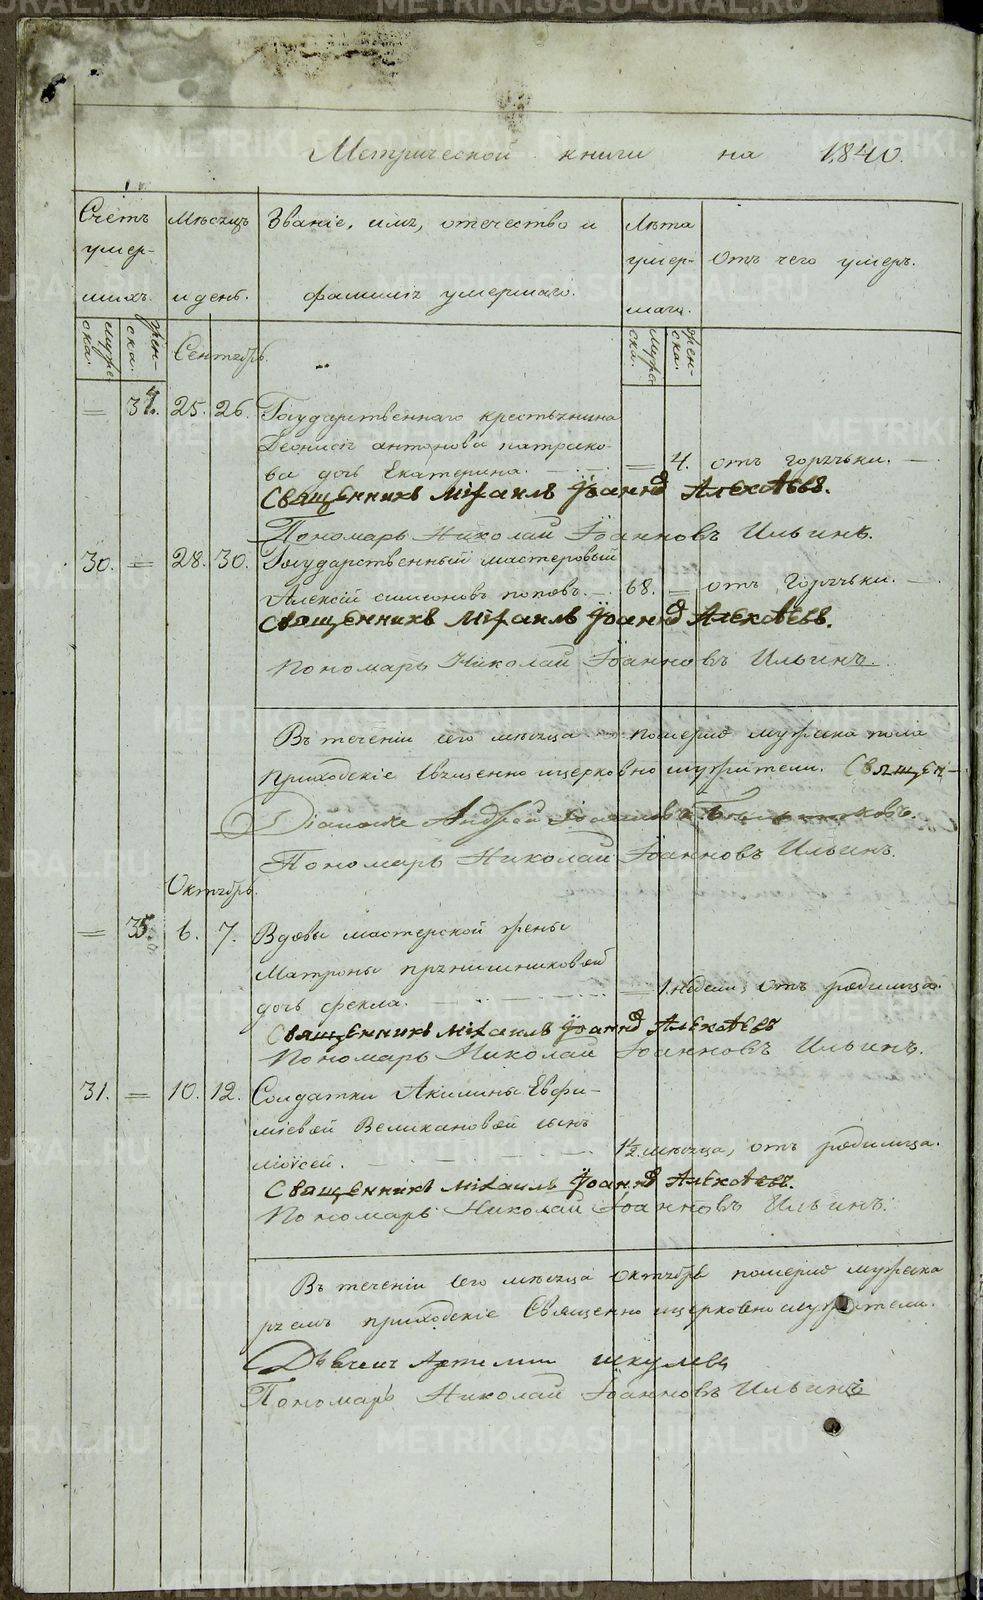 Метрической книги на 1840.
Счетъ умер- шихъ.
Мѣсяцъ и день.
Званіе, имя, отечество и фамилія умершаго.
Лѣта умер- шаго.
Отъ чего умеръ.
муже- ска.
жен- ска.
Сентябрь.
муже- ска.
жен- ска.
= 34. 25. 26. Государственнаго крестьянина
Деонисія антонова патрако-
ва дочь Екатерина. = 4. отъ горячьки.
Священникъ Михаилъ Іоаннъ Алексѣевъ.
Пономарь Николай Іоанновъ Ильинъ.
30. = 28. 30. Государственный мастеровый
Алексій симеоновъ поповъ. 68. = отъ Горячьки.
Священникъ Михаилъ Іоаннъ Алексѣевъ.
Пономарь Николай Іоанновъ Ильинъ.
Въ теченіи сего мѣсяца померло мужска пола
приходскіе Священно ицерковно служители. Священ-
Діаконъ Андрей
Пономарь Николай Іоанновъ Ильинъ.
Октябрь.
= 35. 6. 7. Вдовы мастерской жены
Матроны прянишниковой
дочь фекла. = 1. недели, отъ родимца.
Священникъ Михаилъ Іоаннъ Алексѣевъ
Пономарь Николай Іоанновъ Ильинъ.
31. = 10. 12. Солдатки Акилины Евфи-
міевой Великановой сынъ
Моѵсей. 1½ мѣсяца, отъ родимца.
Священникъ Михаилъ Іоаннъ Алексѣевъ.
Пономарь Николай Іоанновъ Ильинъ.
Въ теченіи сего мѣсяца октября померло мужска
приходскіе Священно ицерковно служители.
Дьячекъ Артемии шкулевъ
Пономарь Николай Іоанновъ Ильинъ
METRIKI.GASO-URAL.RU